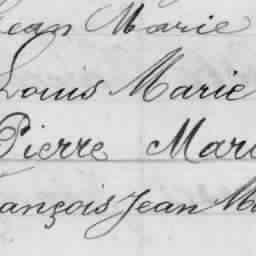 Jean Marie
Louis Marie
Pierre Mari
ançois Jean Ma